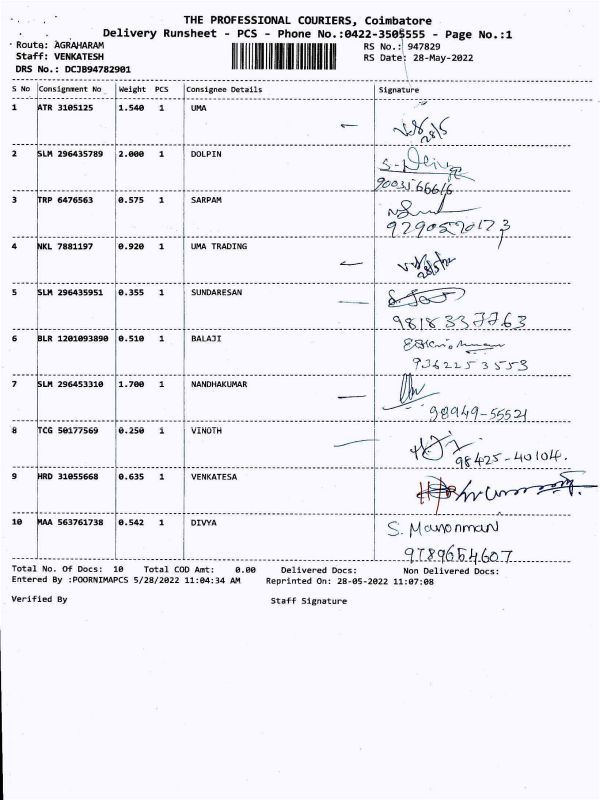 THE PROFESSIONAL COURIERS, Coimbatore
Delivery Runsheet - PCS - Phone No.:0422-3505555 - Page No.:1
Route: AGRAHARAM RS No.: 947829
Staff: VENKATESH RS Date: 28-May-2022
DRS No.: DCJB94782901
S No Consignment No Weight PCS Consignee Details Signature
1 ATR 3105125 1.540 1 UMA
28/5
2 SLM 296435789 2.000 1 DOLPIN
3 TRP 6476563 0.575 1 SARPAM
4 NKL 7881197 0.920 1 UMA TRADING
5 SLM 296435951 0.355 1 SUNDARESAN
9818337763
6 BLR 1201093890 0.510 1 BALAJI
9362253553
7 SLM 296453310 1.700 1 NANDHAKUMAR
98949-55521
8 TCG 50177569 0.250 1 VINOTH
98425-40104.
9 HRD 31055668 0.635 1 VENKATESA
10 MAA 563761738 0.542 1 DIVYA
S. Manonmani
9789654607
Total No. Of Docs: 10 Total COD Amt: 0.00 Delivered Docs: Non Delivered Docs:
Entered By :POORNIMAPCS 5/28/2022 11:04:34 AM Reprinted On: 28-05-2022 11:07:08
Verified By Staff Signature